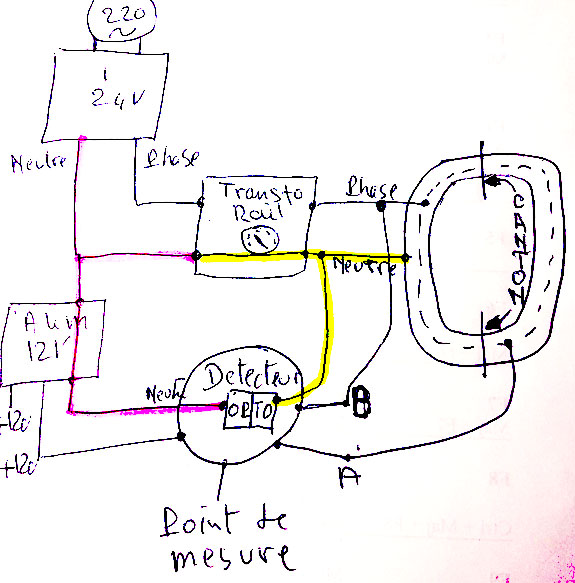 220
~
24V
Neutre
Phase
Transfo
Rail
Phase
Neutre
CANTON
Alim
12V
Detecteur
Neutre
OPTO
B
+12v
+12v
A
Point de
mesure